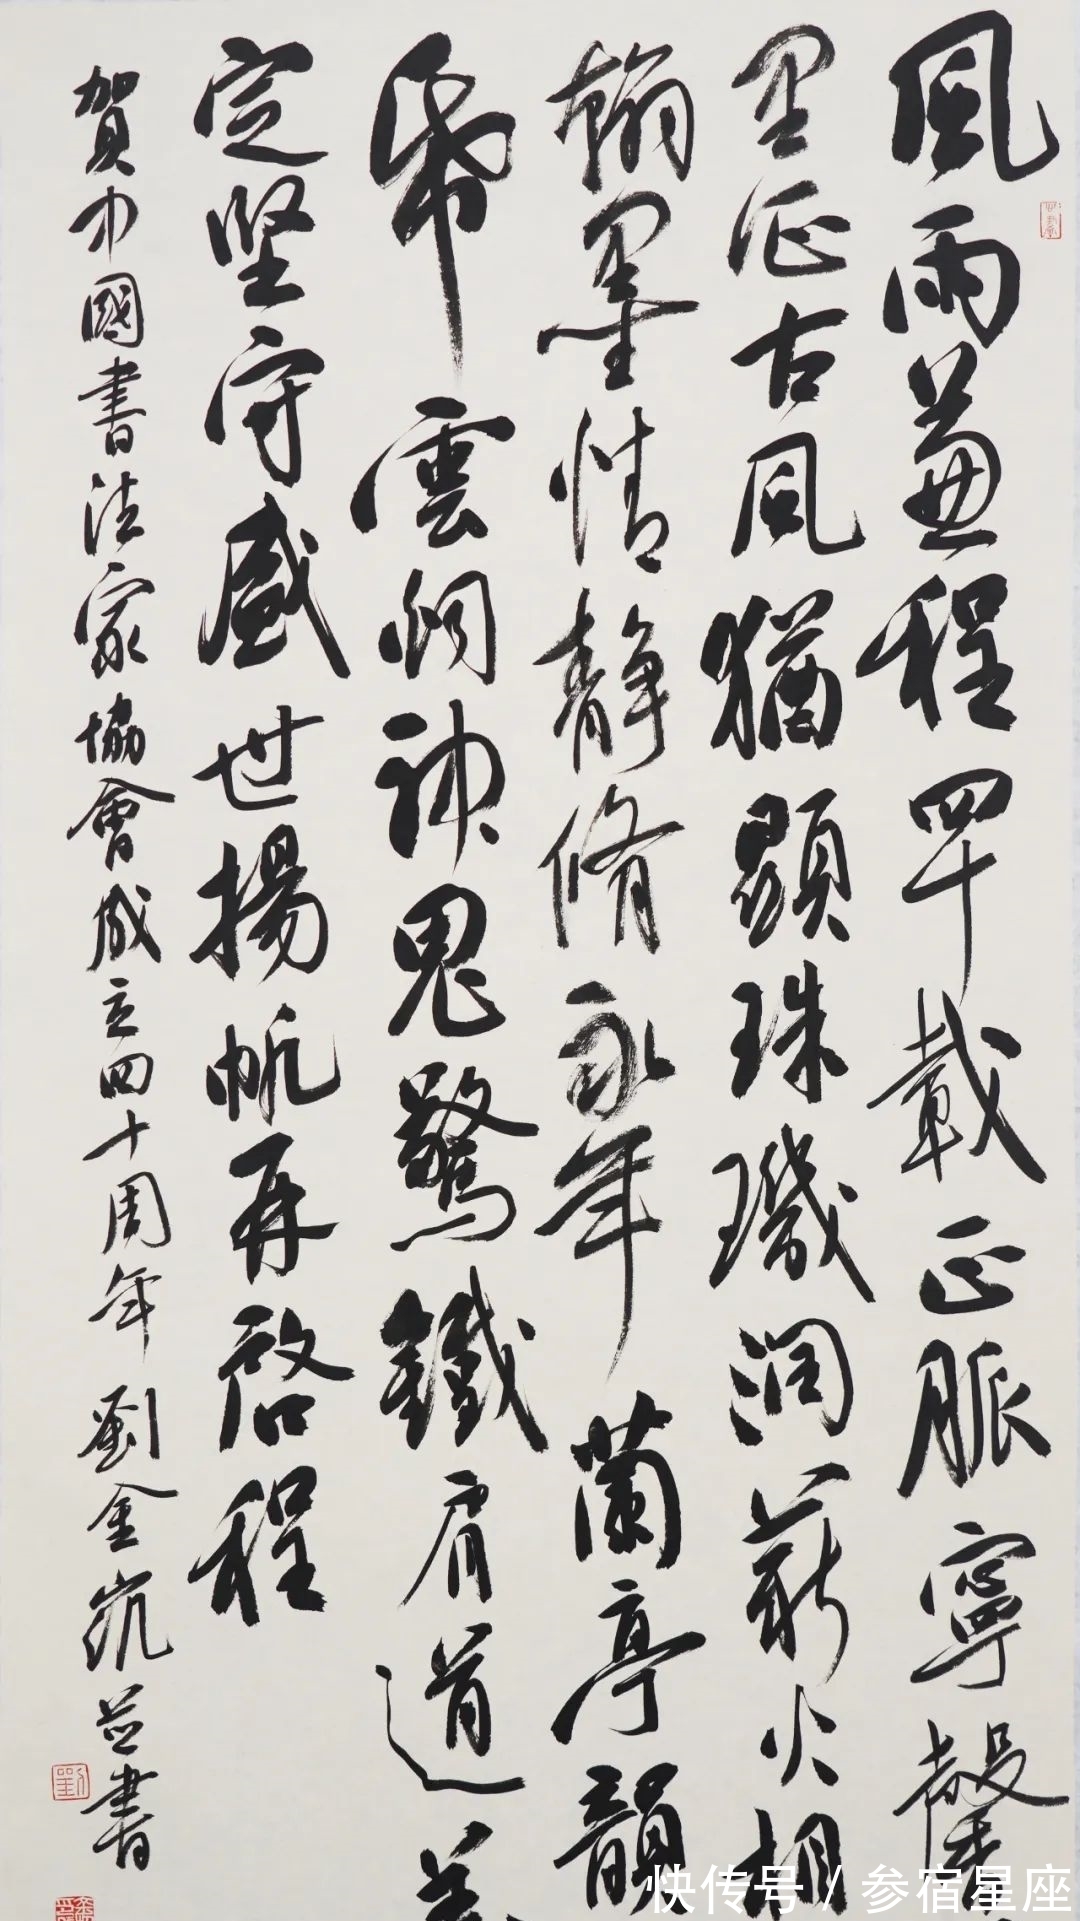 風雨兼程四十載正脈寧馨
里征古風猶顯珠璣潤薪火相
翰墨情静脩永年蘭亭韻
帋雲烟神鬼驚鐵肩道
定堅守盛世揚帆再啓程
賀中國書法家協會成立四十周年 劉金凱並書
快传号 / 参宿星座